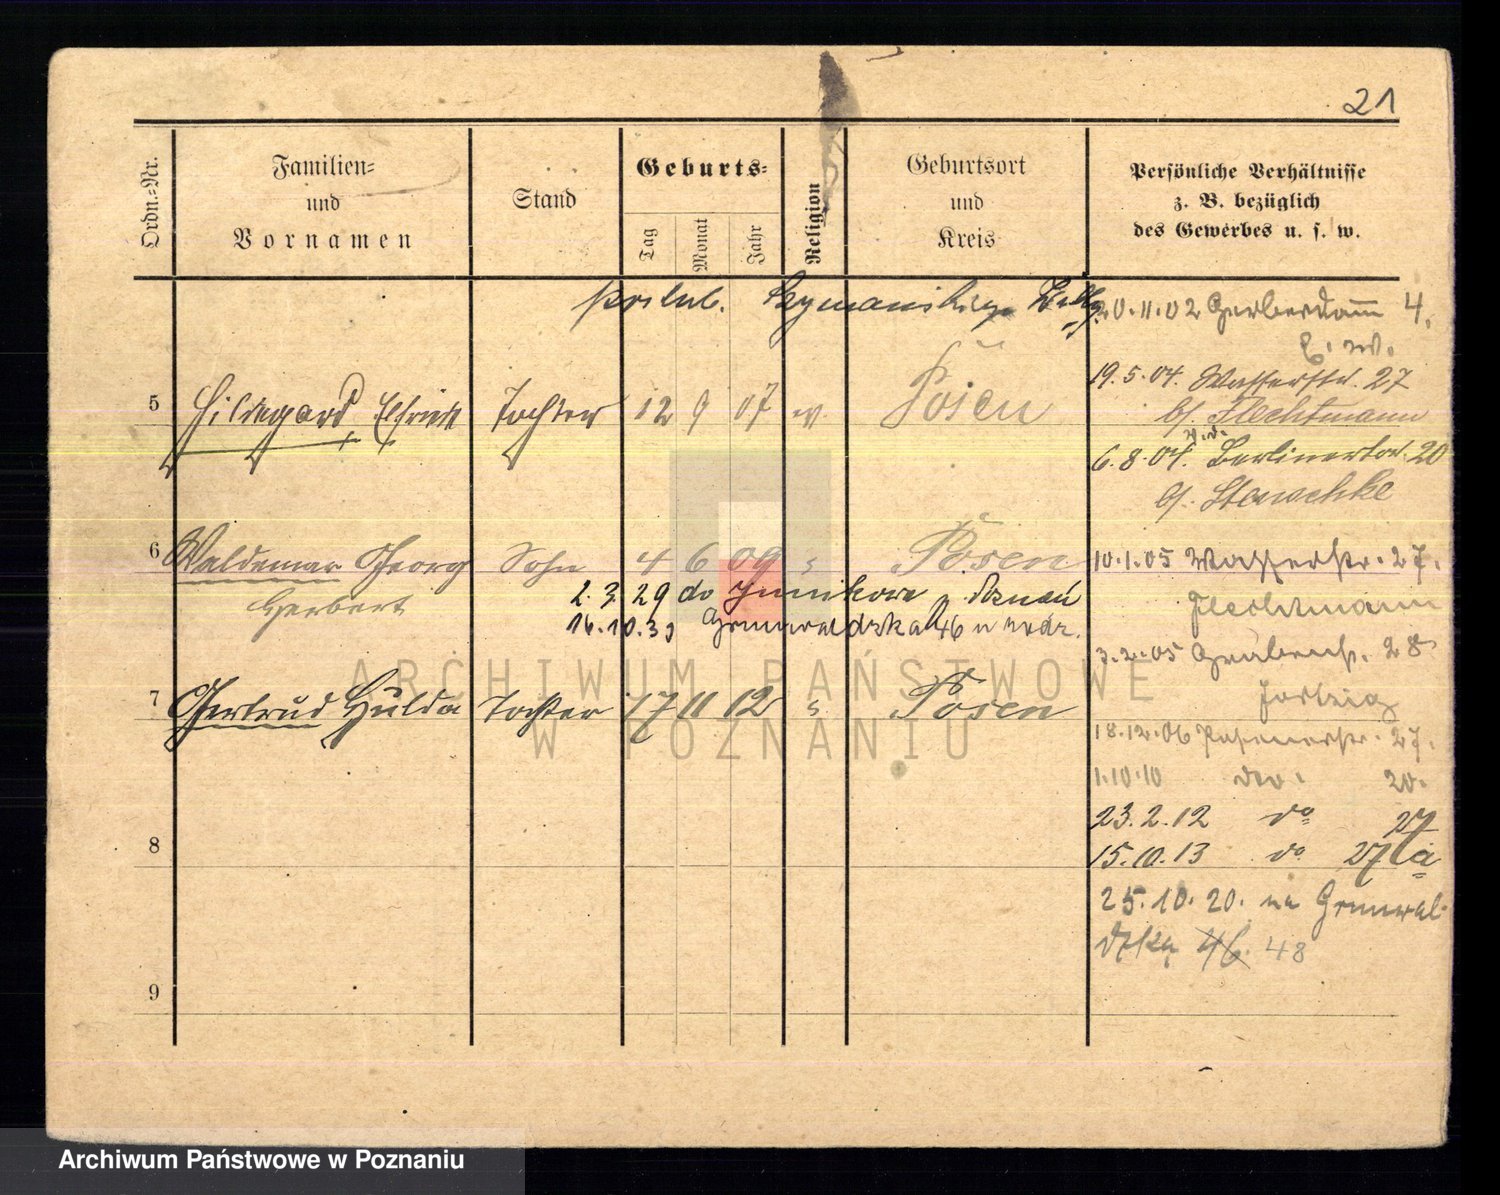 21
Ordn.-Nr.
Familien-
und
Vornamen
Stand
Geburts-
Tag
Monat
Jahr
Religion
Geburtsort
und
Kreis
Persönliche Verhältnisse
z. B. bezüglich
des Gewerbes u. s. w.
20.11.02 Gerberdamm 4.
19.5.04. Wasserstr. 27
b/. Flechtmann
6.8.04. Berlinerstr. 20
b/. Stenschke
5 Hildegard Elfriede Tochter 12 9 07 ev. Posen
6 Waldemar Georg Sohn 4 6 09 " Posen
Herbert
2.3.29 do Junikowa p. Poznań
16.10.39 Grunwaldzka 46
7 Gertrud Hulda Tochter 17 11 12 " Posen
10.1.05 Wasserstr. 27.
Flechtmann
3.2.05 Grabenstr. 28
18.12.06 Posenerstr. 27.
1.10.10 dto. 20.
23.2.12 do 27
15.10.13 do 27a
25.10.20. na Grunwal-
dzką 46. 48
8
9
ARCHIWUM PAŃSTWOWE
W POZNANIU
Archiwum Państwowe w Poznaniu